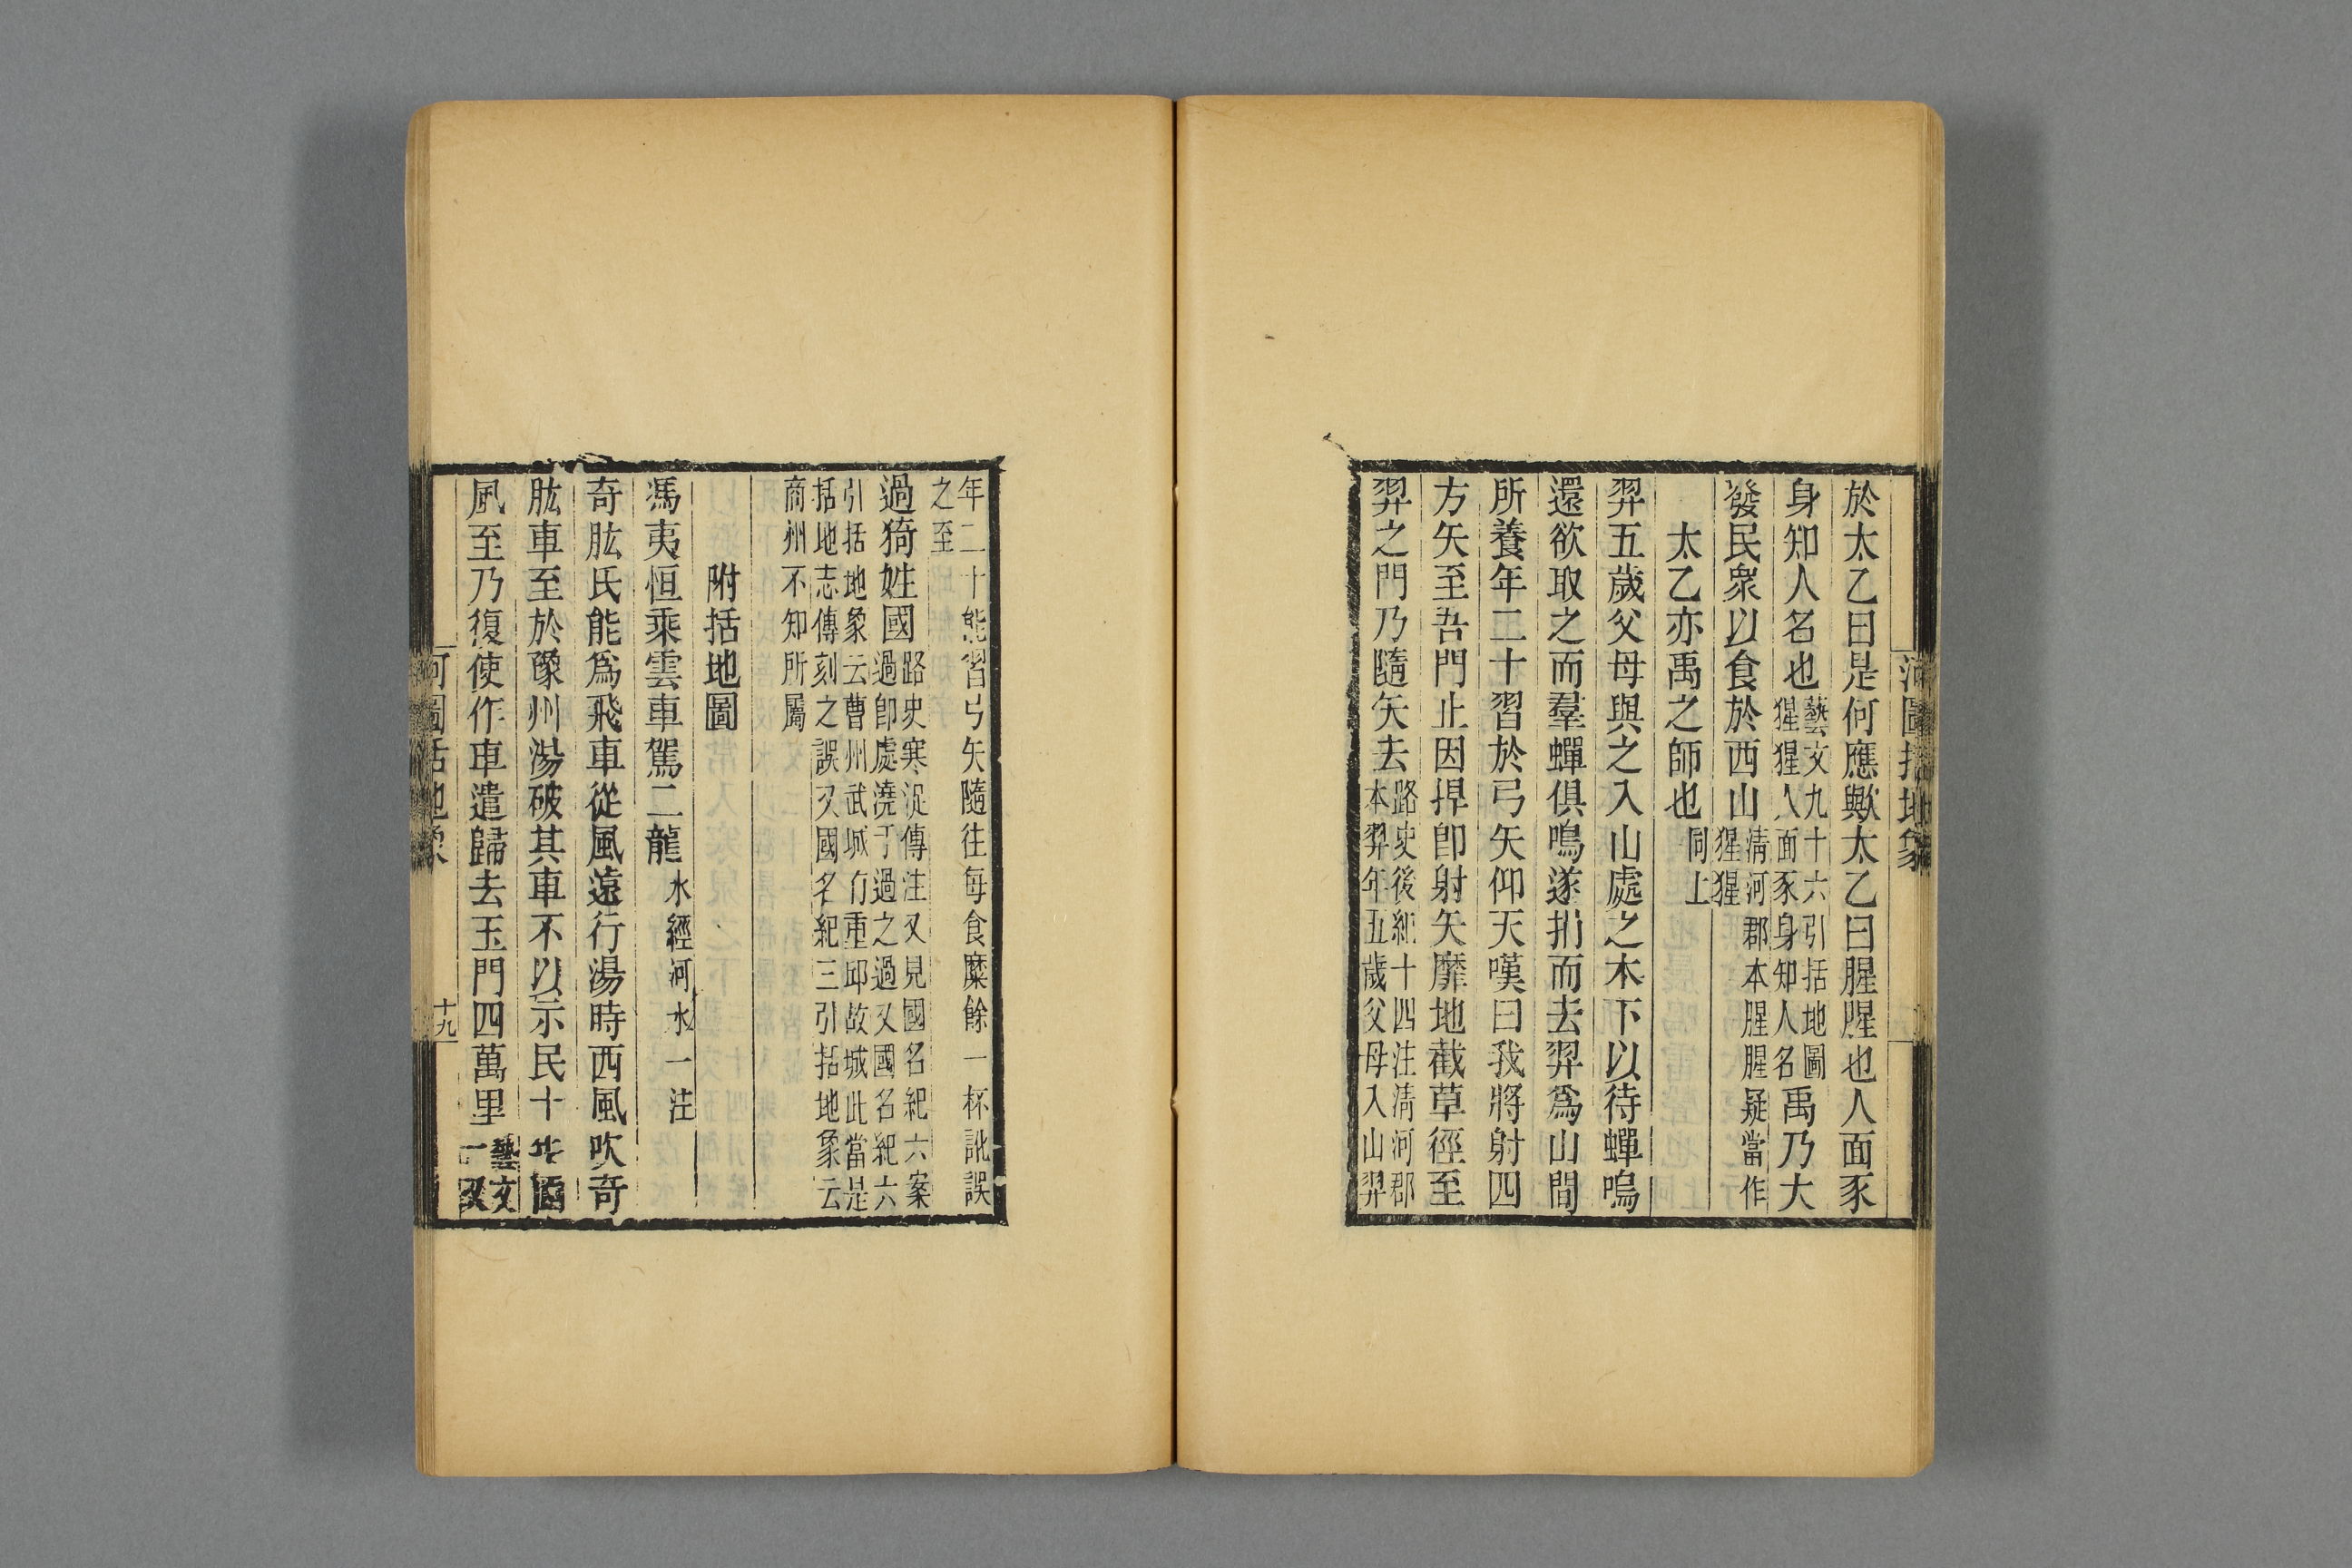 河圖括地象
於太乙曰是何應歟太乙曰腥腥也人面豕
身知人名也藝文九十六引括地圖猩猩人面豕身知人名禹乃大
發民衆以食於西山清河郡本腥腥疑當作猩猩
太乙亦禹之師也同上
羿五歲父母與之入山處之木下以待蟬鳴
還欲取之而羣蟬俱鳴遂捐而去羿爲山間
所養年二十習於弓矢仰天嘆曰我將射四
方矢至吾門止因捍卽射矢靡地截草徑至
羿之門乃隨矢去路史後紀十四注清河郡本羿年五歲父母入山羿
年二十能習弓矢隨往每食麋餘一杯訛誤
之至
過猗姓國路史寒浞傳注又見國名紀六案過卽處澆于過之過又國名紀六
引括地象云曹州武城有重邱故城此當是
括地志傳刻之誤又國名紀三引括地象云
商州不知所屬
附括地圖
馮夷恒乘雲車駕二龍水經河水一注
奇肱氏能爲飛車從風遠行湯時西風吹奇
肱車至於豫州湯破其車不以示民十年西
風至乃復使作車遣歸去玉門四萬里藝文一又
河圖括地象
十九